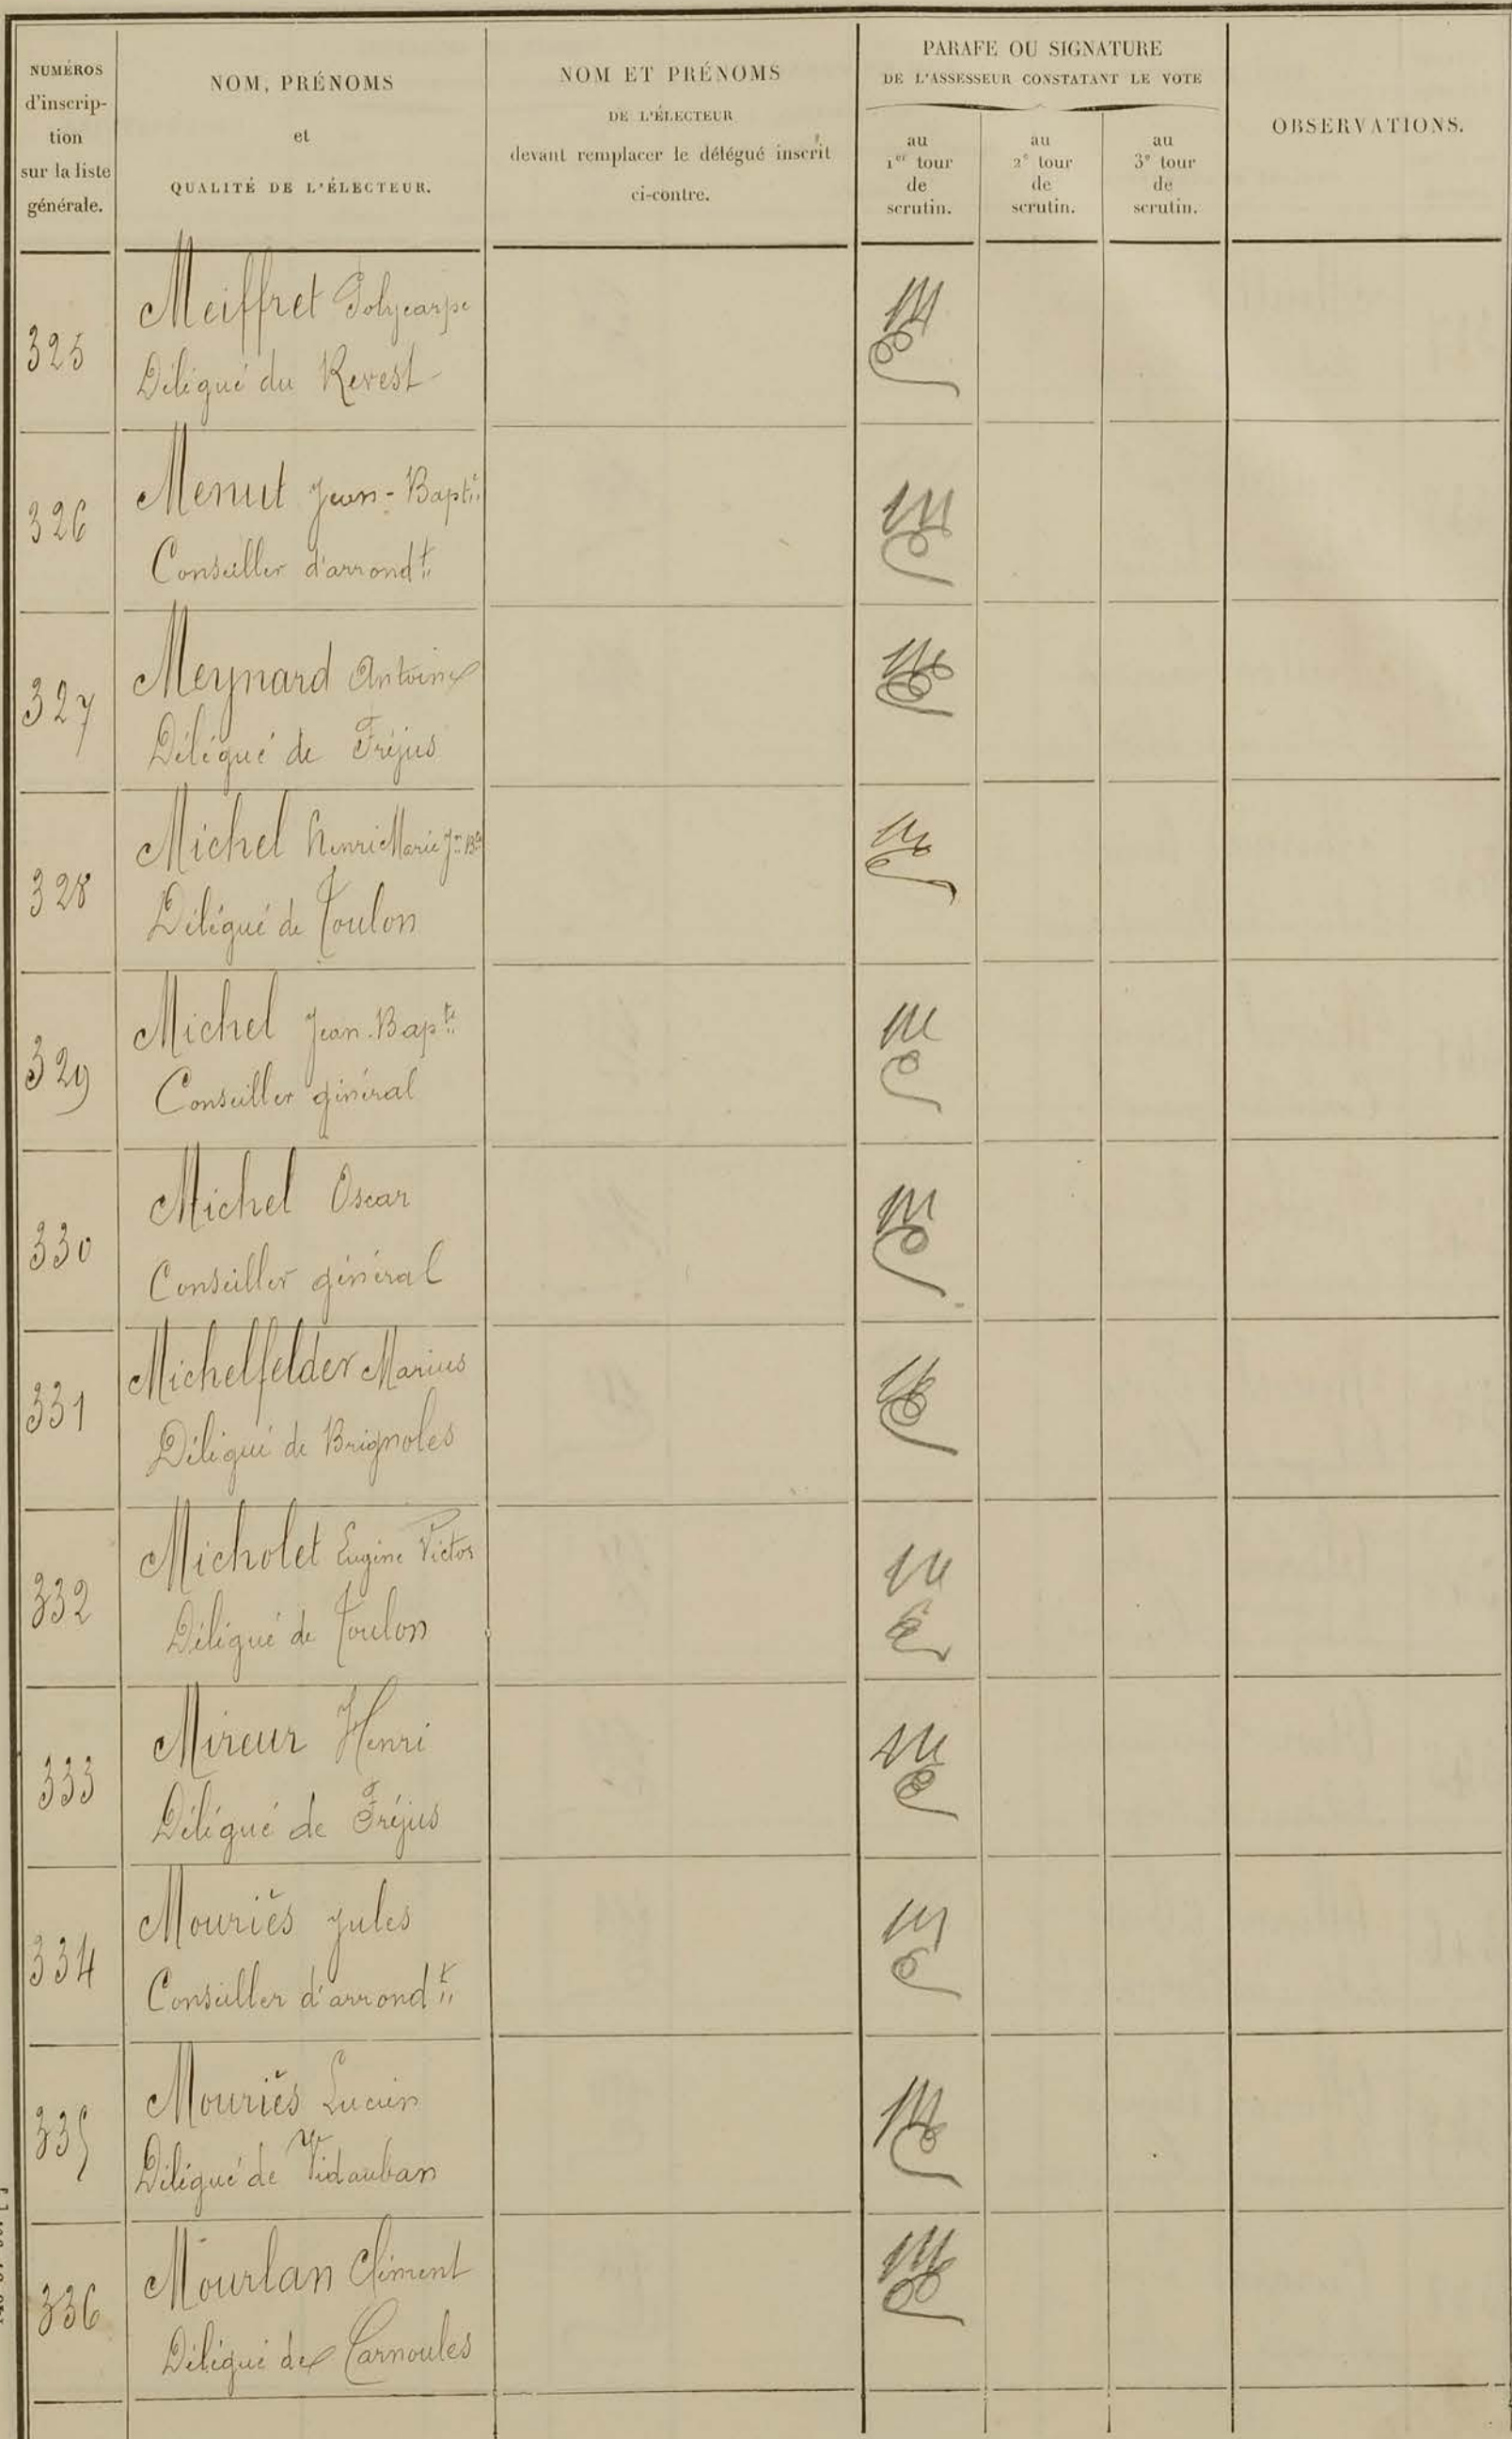 NUMÉROS
d'inscrip-
tion
sur la liste
générale.
NOM, PRÉNOMS
et
QUALITÉ DE L'ÉLECTEUR.
NOM ET PRÉNOMS
DE L'ÉLECTEUR
devant remplacer le délégué inscrit
ci-contre.
PARAFE OU SIGNATURE
DE L'ASSESSEUR CONSTATANT LE VOTE
au
1er tour
de
scrutin.
au
2e tour
de
scrutin.
au
3e tour
de
scrutin.
OBSERVATIONS.
325
Meiffret Polycarpe
Délégué du Revest
326
Menut Jean-Bapte
Conseiller d'arrondt
327
Meynard Antoine
Délégué de Fréjus
328
Michel Henri Marie Jn Bte
Délégué de Toulon
329
Michel Jean-Bapte
Conseiller général
330
Michel Oscar
Conseiller général
331
Michelfelder Marius
Délégué de Brignoles
332
Micholet Eugène Victor
Délégué de Toulon
333
Mireur Henri
Délégué de Fréjus
334
Mouriès Jules
Conseiller d'arrondt
335
Mouriès Lucien
Délégué de Vidauban
336
Mourlan Clément
Délégué de Carnoules